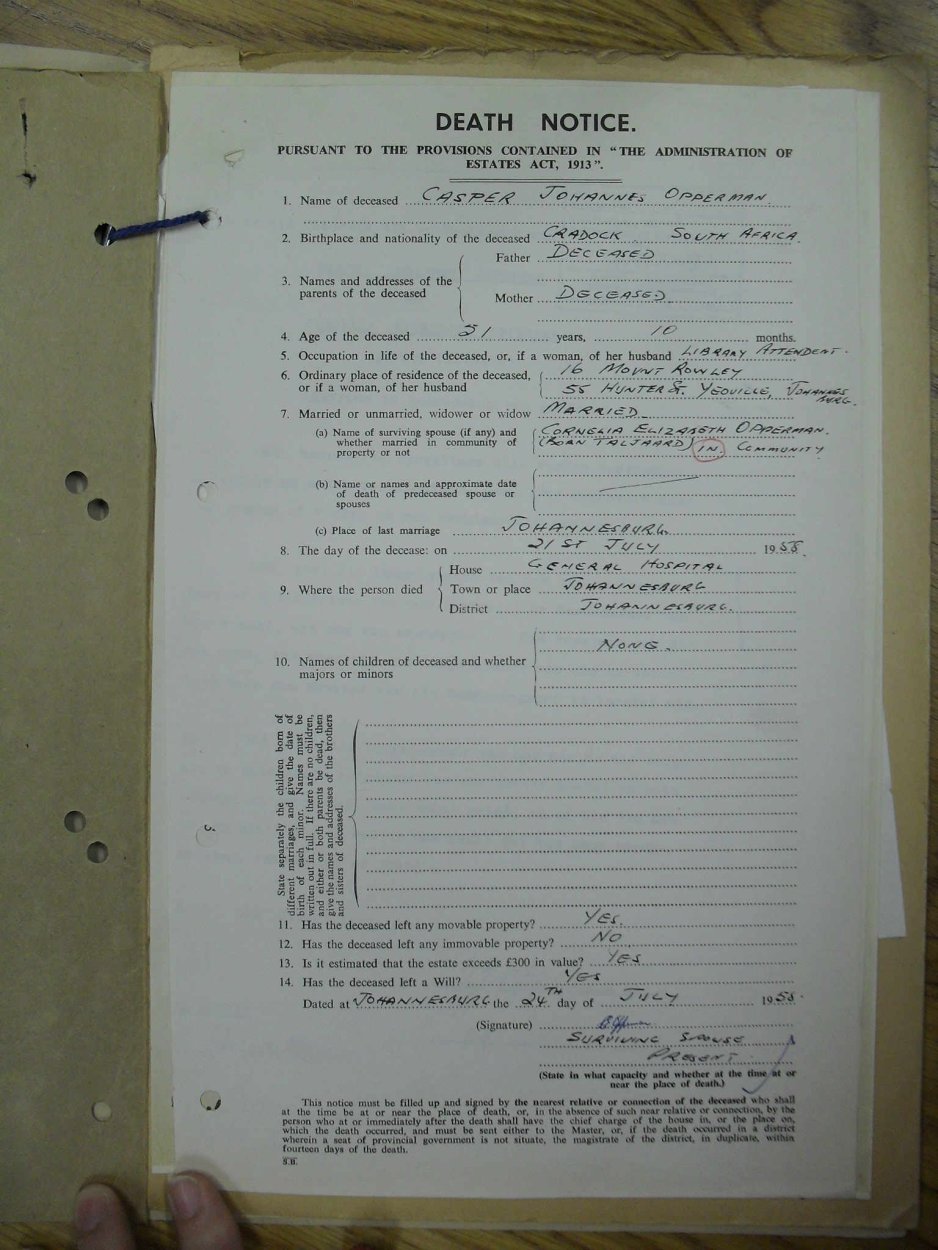 DEATH NOTICE.
PURSUANT TO THE PROVISIONS CONTAINED IN "THE ADMINISTRATION OF
ESTATES ACT, 1913".
1. Name of deceased CASPER JOHANNES OPPERMAN
2. Birthplace and nationality of the deceased CRADOCK SOUTH AFRICA
3. Names and addresses of the parents of the deceased
Father DECEASED
Mother DECEASED
4. Age of the deceased 51 years, 10 months.
5. Occupation in life of the deceased, or, if a woman, of her husband LIBRARY ATTENDENT.
6. Ordinary place of residence of the deceased, 16 MOUNT ROWLEY
or if a woman, of her husband 55 HUNTER St. YEOVILLE, JOHANNES
BURG.
7. Married or unmarried, widower or widow MARRIED
(a) Name of surviving spouse (if any) and CORNELIA ELIZABETH OPPERMAN.
whether married in community of (BORN TALJAARD) IN COMMUNITY
property or not
(b) Name or names and approximate date
of death of predeceased spouse or
spouses
(c) Place of last marriage JOHANNESBURG
8. The day of the decease: on 21ST JULY 1958.
9. Where the person died
House GENERAL HOSPITAL
Town or place JOHANNESBURG
District JOHANNESBURG.
10. Names of children of deceased and whether
majors or minors
NONE.
State separately the children born of
different marriages, and give the date of
birth of each minor. Names must be
written out in full. If there are no children,
and either or both parents be dead, then
give the names and addresses of the brothers
and sisters of deceased.
11. Has the deceased left any movable property? YES.
12. Has the deceased left any immovable property? NO
13. Is it estimated that the estate exceeds £300 in value? YES
14. Has the deceased left a Will? YES
Dated at JOHANNESBURG the 24TH day of JULY 1958.
(Signature)
SURVIVING SPOUSE
PRESENT
(State in what capacity and whether at the time at or
near the place of death.)
This notice must be filled up and signed by the nearest relative or connection of the deceased who shall
at the time be at or near the place of death, or, in the absence of such near relative or connection, by the
person who at or immediately after the death shall have the chief charge of the house in, or the place on,
which the death occurred, and must be sent either to the Master, or, if the death occurred in a district
wherein a seat of provincial government is not situate, the magistrate of the district, in duplicate, within
fourteen days of the death.
S.B.